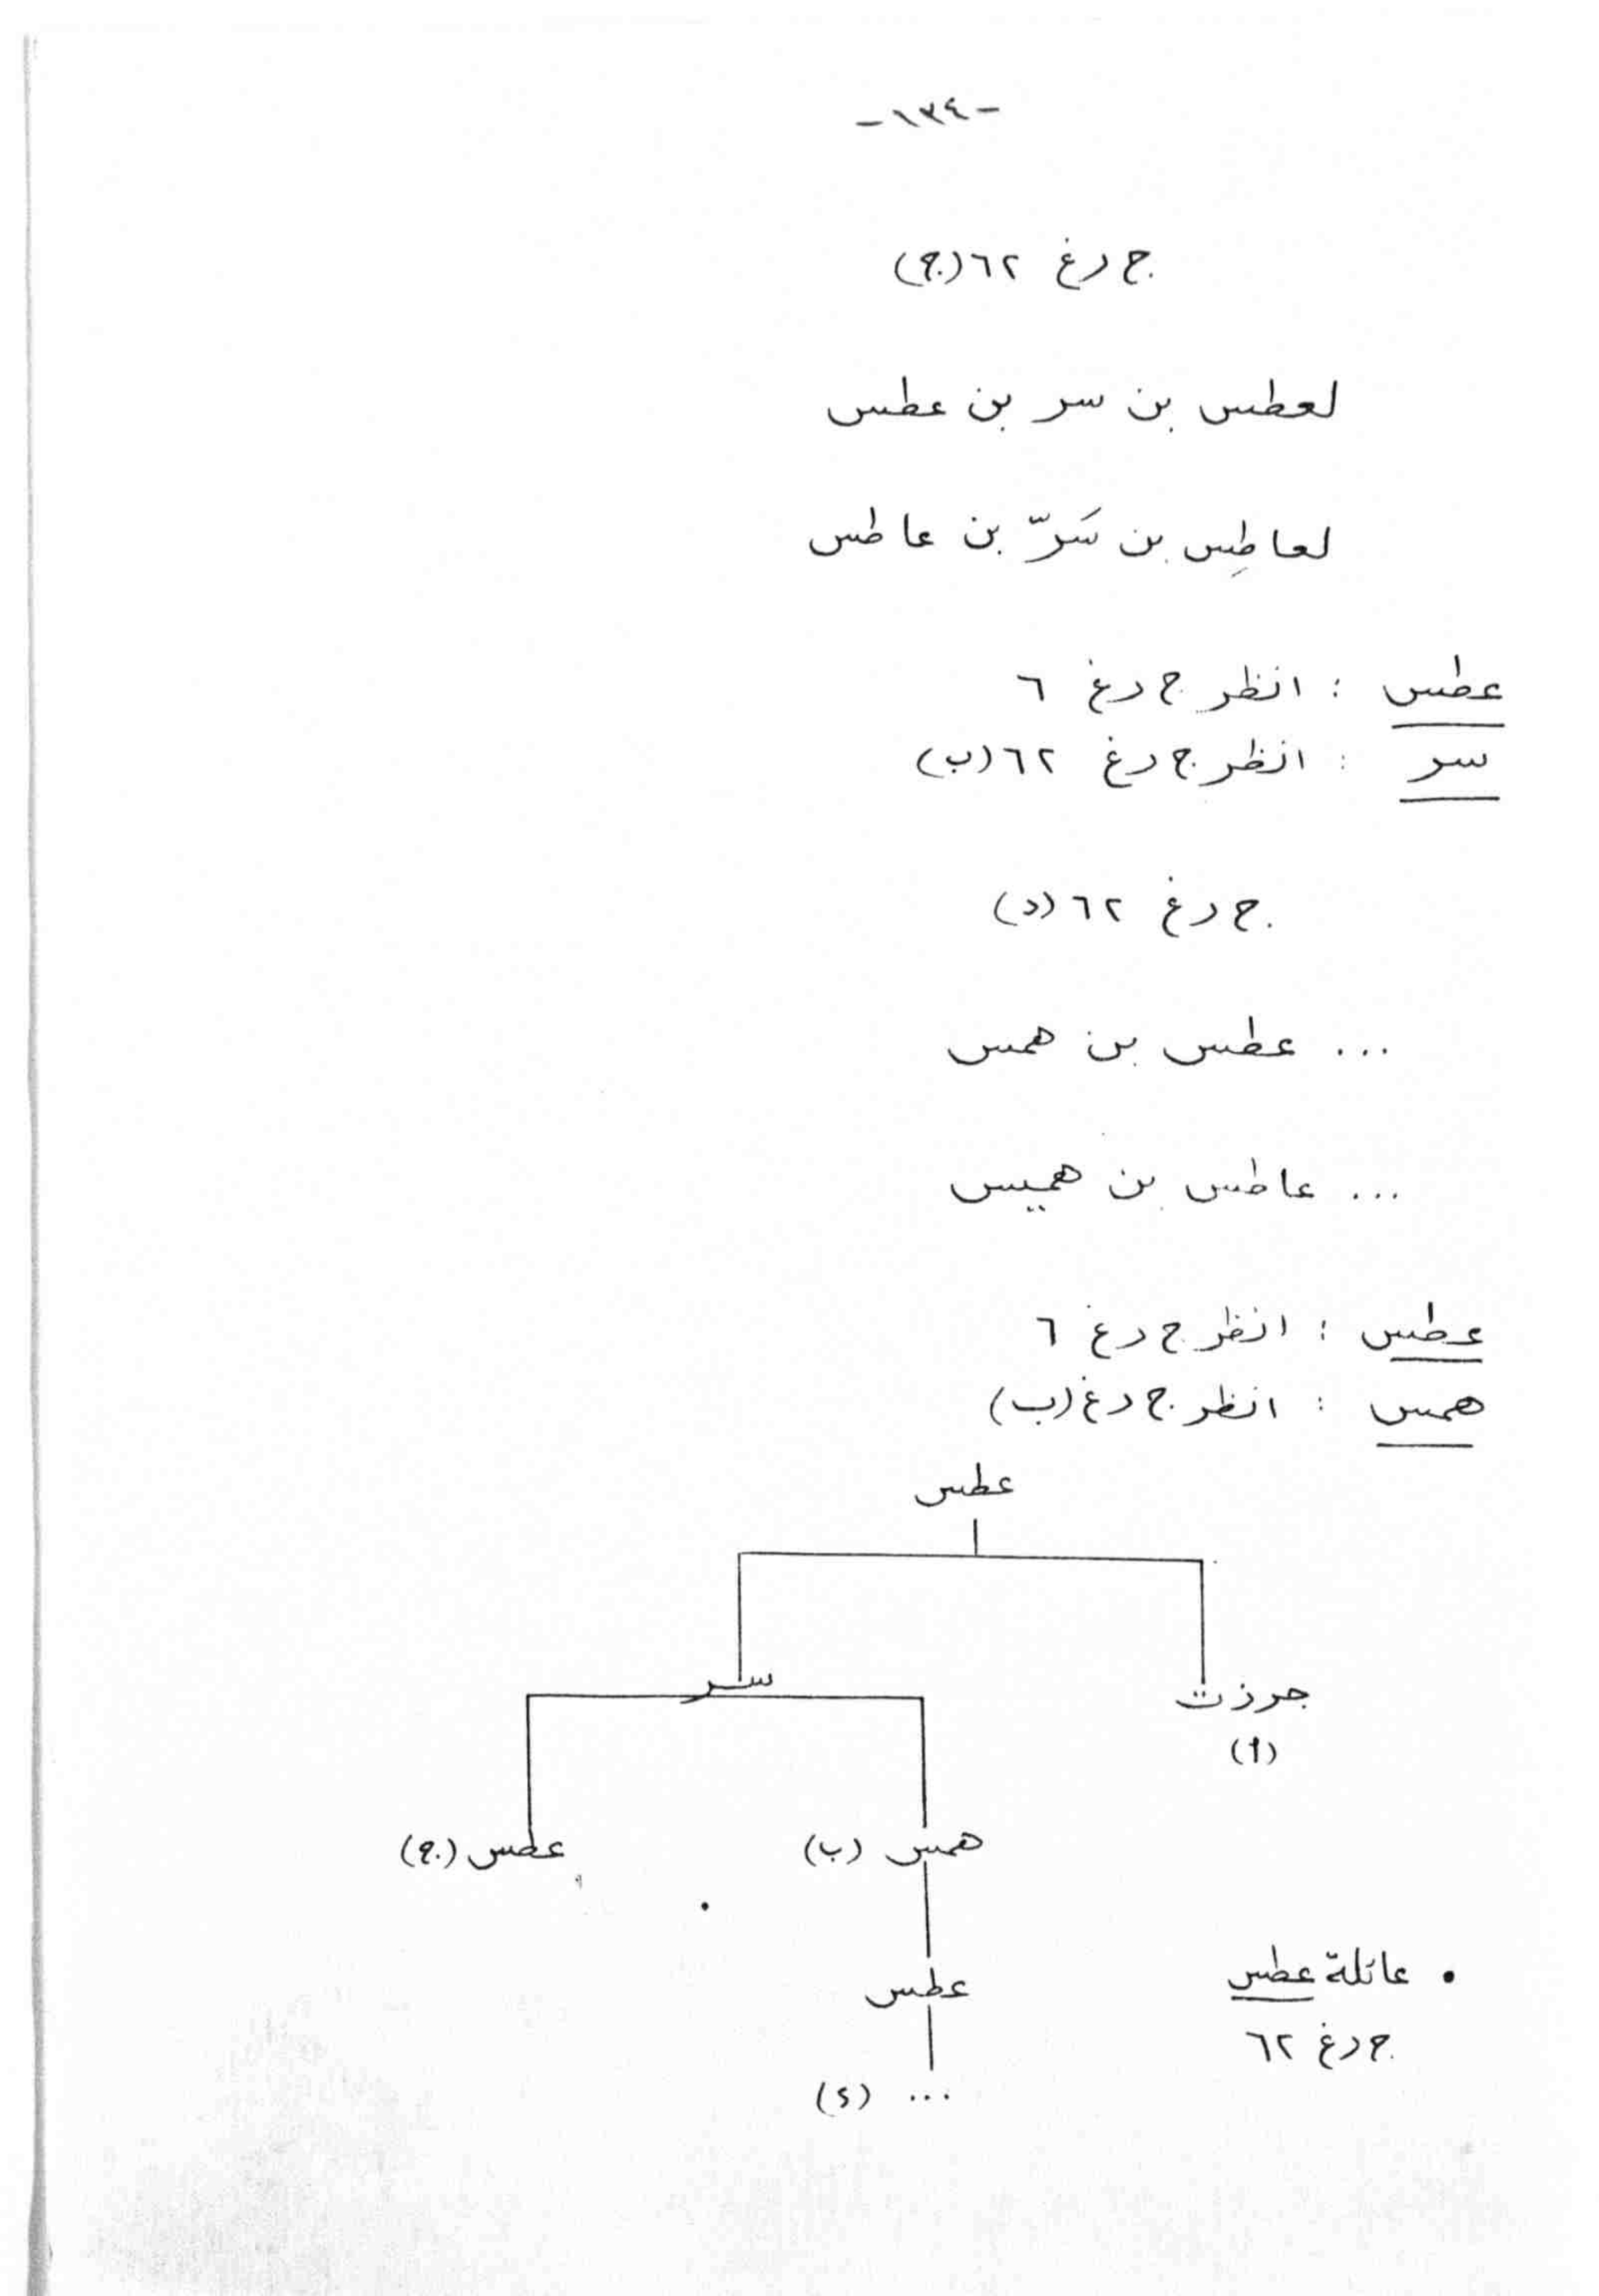 -١٣٤-
ج رغ ٦٢(ج)
لعطس بن سر بن عطس
لعاطِس بن سَرّ بن عاطس
عطس : انظر ج رغ ٦
سر : انظر ج رغ ٦٢(ب)
ج رغ ٦٢(د)
... عطس بن همس
... عاطس بن هميس
عطس : انظر ج رغ ٦
همس : انظر ج رغ(ب)
عطس
سر
جرزت
(أ)
همس (ب)
عطس (ج)
عطس
... (د)
• عائلة عطس
ج رغ ٦٢